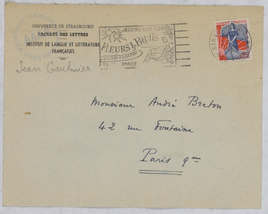 UNIVERSITÉ DE STRASBOURG
FACULTÉ DES LETTRES
INSTITUT DE LANGUE ET LITTÉRATURE
FRANÇAISES
Jean Gaulmier
FLEURS
Monsieur André Breton
42 rue Fontaine
Paris 9me